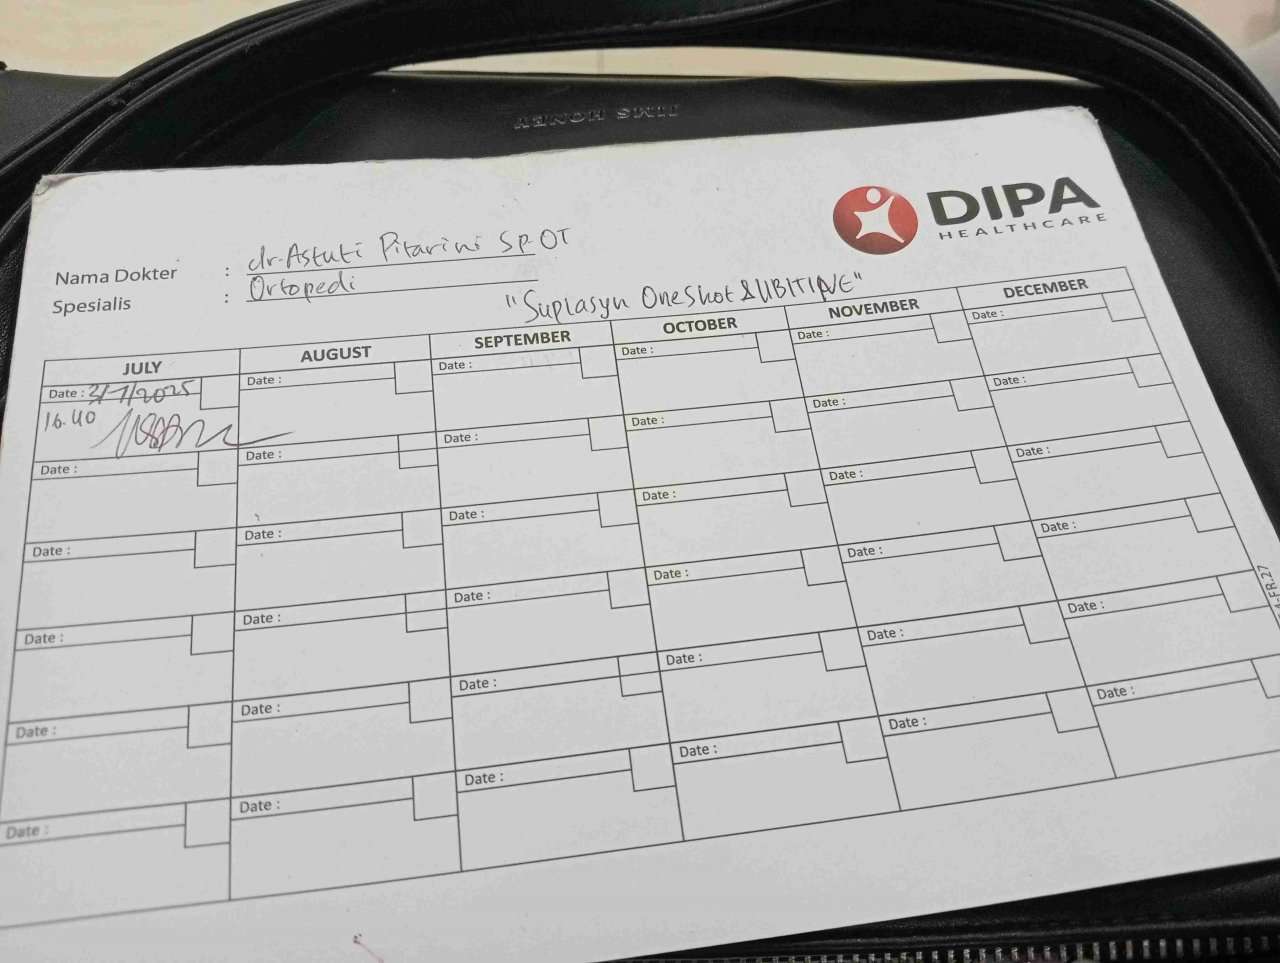 JIMS HONEY
DIPA
HEALTHCARE
Nama Dokter : dr. Astuti Pitarini SpOT
Spesialis : Ortopedi
"Suplasyn OneShot & UBITINE"
JULY AUGUST SEPTEMBER OCTOBER NOVEMBER DECEMBER
Date : 3/7/2025 Date : Date : Date : Date : Date :
16.40
Date : Date : Date : Date : Date : Date :
Date : Date : Date : Date : Date : Date :
Date : Date : Date : Date : Date : Date :
Date : Date : Date : Date : Date : Date :
Date : Date : Date : Date : Date : Date :